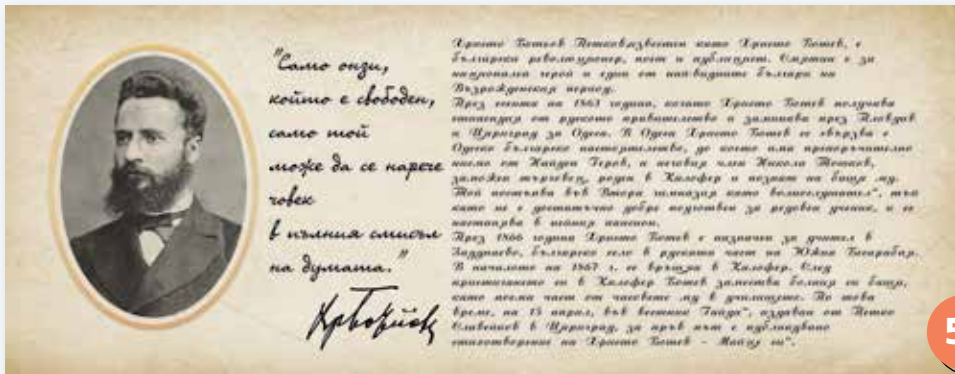 "Само онзи,
който е свободен,
само той
може да се нарече
човек
в пълния смисъл
на думата."
Христо Ботьов Петков, известен като Христо Ботев, е
български революционер, поет и публицист. Смятан е за
национален герой и един от най-видните българи на
Възрожденския период.
През есента на 1863 година, когато Христо Ботев получава
стипендия от руското правителство и заминава през Пловдив
и Цариград за Одеса. В Одеса Христо Ботев се свързва с
Одеско българско настоятелство, до което има препоръчително
писмо от Найден Геров, и неговия член Никола Тошков,
заможен търговец, роден в Калофер и познат на баща му.
Той постъпва във Втора гимназия като волнослушател", тъй
като не е достатъчно добре подготвен за редовен ученик, и се
настанява в нейния пансион.
През 1866 година Христо Ботев е назначен за учител в
Задунаево, българско село в руската част на Южна Бесарабия.
В началото на 1867 г. се връща в Калофер. След
пристигането си в Калофер Ботев замества болния си баща,
като поема част от часовете му в училището. По това
време, на 15 април, във вестник "Гайда", издаван от Петко
Славейков в Цариград, за пръв път е публикувано
стихотворение на Христо Ботев - Майце си".
5